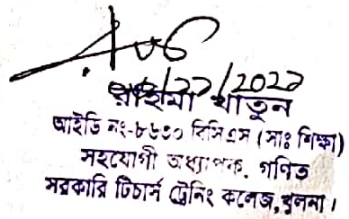 রাহিমা খাতুন
আইডি নং-৮৬৩০ বিসিএস (সাঃ শিক্ষা)
সহযোগী অধ্যাপক, গণিত
সরকারি টিচার্স ট্রেনিং কলেজ, খুলনা।